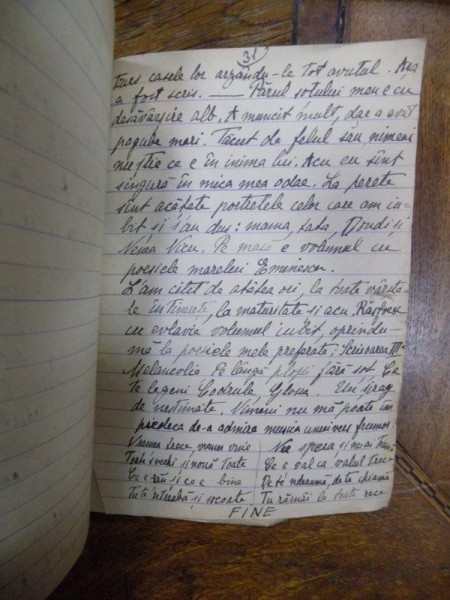 31
trus casele lor arzându-le tot avutul. Așa
a fost scris. — Părul soțului meu e cu
desăvârșire alb. A muncit mult, dar a avut
pagube mari. Tăcut de felul său, nimeni
nu știe ce e în inima lui. Acu eu sînt
singură în mica mea odae. La perete
sînt acățate portretele celor care am iu-
bit și s'au dus: mama, tata, și
Nenea Nicu. Pe masă e volumul cu
poesiele marelui Eminescu.
L'am citit de atâtea ori, la toate vârste-
le tinerețe, la maturitate și acu. Răsfoesc
cu evlavie volumul iubit, oprindu-
mă la poesiele mele preferate: Scrisoarea III
Melancolia Pe lângă plopii fără soț Ce
te legeni Codrule, Glossa. Un șirag
de nestimate. Nimeni nu mă poate im-
piedeca de-a admira frumos
Vremea trece, vremea vine
Toate's vechi și nouă toate
Ce e rău și ce e bine
Tu te'ntreabă și socoate
Nu spera și nu ai teamă
Ce e val ca valul trece
De te'ndeamnă, de te cheamă
Tu rămâi la toate rece
FINE